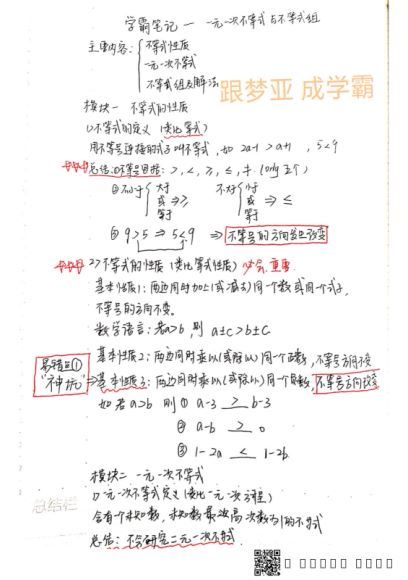 学霸笔记一 一元一次不等式与不等式组
主要内容：不等式性质
一元一次不等式
不等式组及解法
跟梦亚 成学霸
模块一 不等式的性质
1）不等式的定义（类比等式）
用不等号连接的式子叫不等式，如 2a-1>a+1， 5<9
总结：①不等号思指：>，<，≥，≤，≠（only 五个）
②不小于 大于 或 等于 ⇒≥ 不大于 小于 或 等于 ⇒≤
③ 9>5 ⇒ 5<9 ⇒ 不等号的方向发生改变
2）不等式的性质（类比等式性质） 必会，重要
基本性质1：两边同时加上（或减去）同一个数或同一个式子，
不等号的方向不变。
数学语言：若a>b，则 a±c>b±c
基本性质2：两边同时乘以（或除以）同一个正数，不等号方向不变
易错点①
"神坑"
基本性质3：两边同时乘以（或除以）同一个负数，不等号方向改变
如 若a>b 则① a-3 > b-3
② a-b > 0
③ 1-2a < 1-2b
模块二 一元一次不等式
总结栏
1）一元一次不等式定义（类比一元一次方程）
含有一个未知数，未知数最高次数为1的不等式
总结：不会研究二元一次不等式.